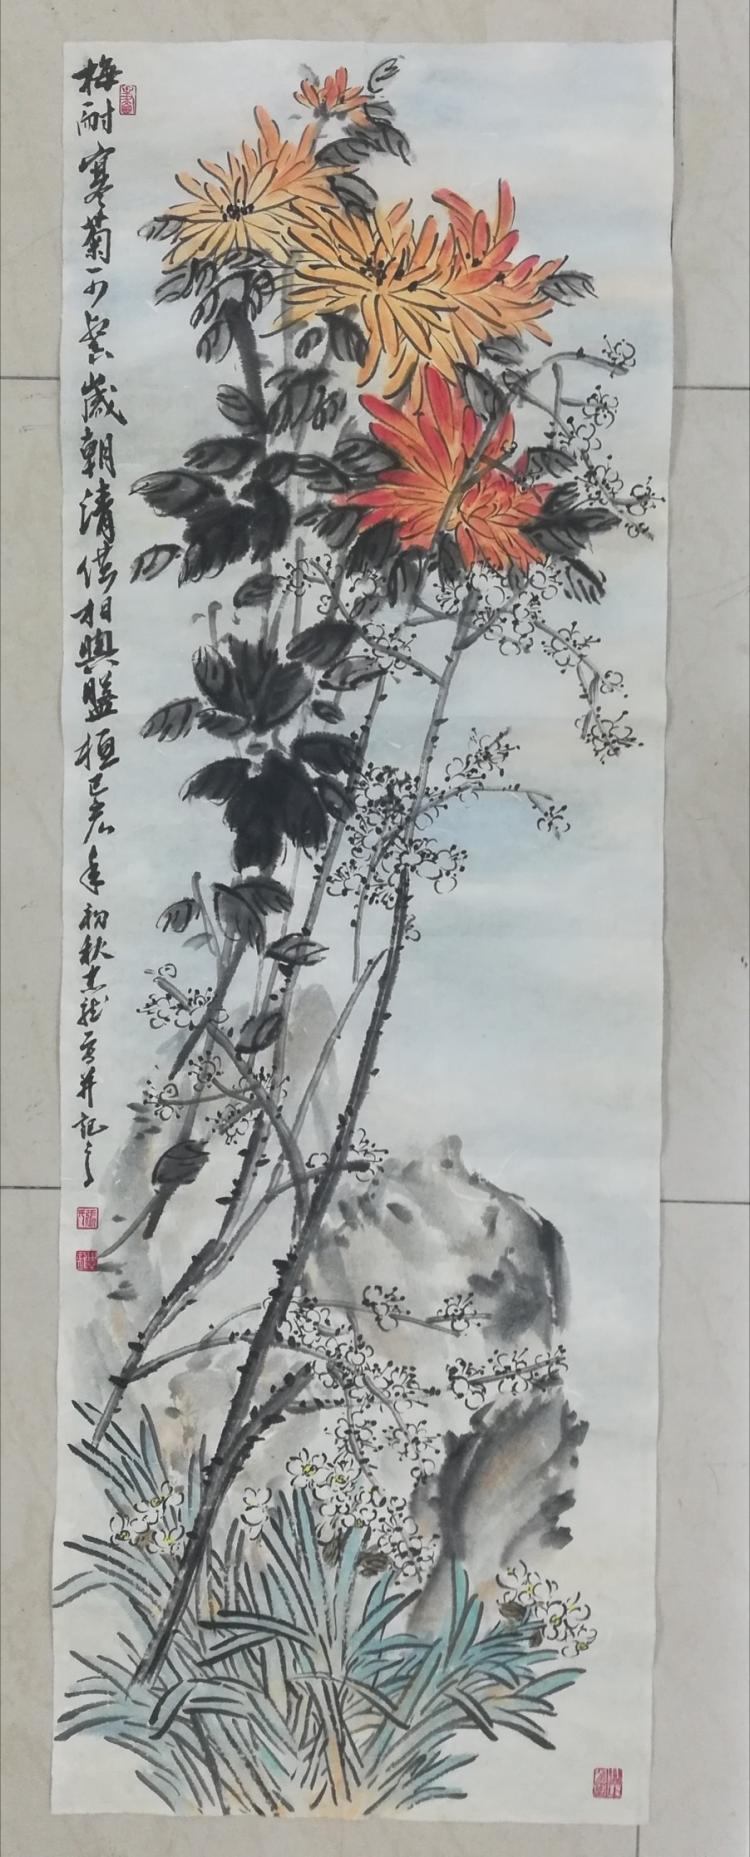 梅耐寒菊可餐歲朝清供相與盤桓己亥年初秋志龍寫並記之